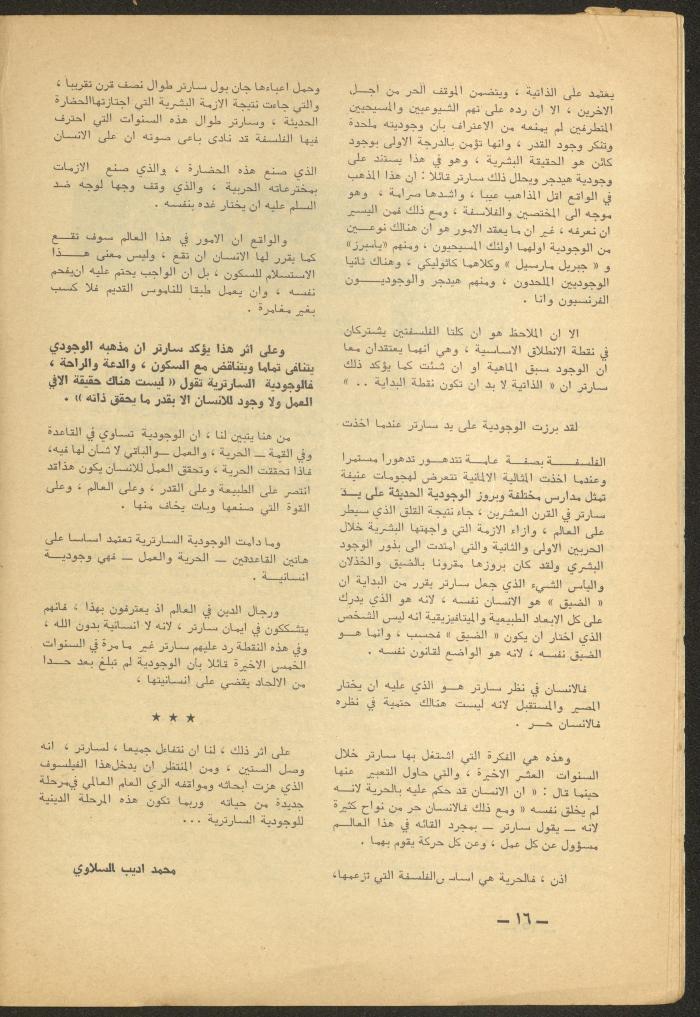 يعتمد على الذاتية ، ويتضمن الموقف الحر من اجل
الاخرين ، الا ان رده على تهم الشيوعيين والمسيحيين
المتطرفين لم يمنعه من الاعتراف بأن وجوديته ملحدة
وتنكر وجود القدر ، وانها تؤمن بالدرجة الاولى بوجود
كائن هو الحقيقة البشرية ، وهو في هذا يستند على
وجودية هيدجر ويحلل ذلك سارتر قائلا : ان هذا المذهب
في الواقع اقل المذاهب عيبا ، واشدها صرامة ، وهو
موجه الى المختصين والفلاسفة ، ومع ذلك فمن اليسير
ان نعرفه ، غير ان ما يعقد الامور هو ان هنالك نوعين
من الوجودية اولهما اولئك المسيحيون ، ومنهم «ياسبرز»
و « جبريل مارسيل » وكلاهما كاثوليكي ، وهناك ثانيا
الوجوديين الملحدون ، ومنهم هيدجر والوجوديون
الفرنسيون وانا .
الا ان الملاحظ هو ان كلتا الفلسفتين يشتركان
في نقطة الانطلاق الاساسية ، وهي أنهما يعتقدان معا
ان الوجود سبق الماهية او ان شئت كما يؤكد ذلك
سارتر ان « الذاتية لا بد ان تكون نقطة البداية .. »
لقد برزت الوجودية على يد سارتر عندما اخذت
الفلسفة بصفة عامة تتدهور تدهورا مستمرا
وعندما اخذت المثالية الالمانية تتعرض لهجومات عنيفة
تمثل مدارس مختلفة وبروز الوجودية الحديثة على يد
سارتر في القرن العشرين ، جاء نتيجة القلق الذي سيطر
على العالم ، وازاء الازمة التي واجهتها البشرية خلال
الحربين الاولى والثانية والتي امتدت الى بذور الوجود
البشري ولقد كان بروزها مقرونا بالضيق والخذلان
والياس الشيء الذي جعل سارتر يقرر من البداية ان
« الضيق » هو الانسان نفسه ، لانه هو الذي يدرك
على كل الابعاد الطبيعية والميتافيزيقية انه ليس الشخص
الذي اختار ان يكون « الضيق » فحسب ، وانما هو
الضيق نفسه ، لانه هو الواضع لقانون نفسه .
فالانسان في نظر سارتر هو الذي عليه ان يختار
المصير والمستقبل لانه ليست هنالك حتمية في نظره
فالانسان حر .
وهذه هي الفكرة التي اشتغل بها سارتر خلال
السنوات العشر الاخيرة ، والتي حاول التعبير عنها
حينما قال : « ان الانسان قد حكم عليه بالحرية لانه
لم يخلق نفسه « ومع ذلك فالانسان حر من نواح كثيرة
لانه — يقول سارتر — بمجرد القائه في هذا العالم
مسؤول عن كل عمل ، وعن كل حركة يقوم بهما .
اذن ، فالحرية هي اساس الفلسفة التي تزعمها،
وحمل اعباءها جان بول سارتر طوال نصف قرن تقريبا ،
والتي جاءت نتيجة الازمة البشرية التي اجتازتها الحضارة
الحديثة ، وسارتر طوال هذه السنوات التي احترف
فيها الفلسفة قد نادى باعى صوته ان على الانسان
الذي صنع هذه الحضارة ، والذي صنع الازمات
بمخترعاته الحربية ، والذي وقف وجها لوجه ضد
السلم عليه ان يختار غده بنفسه .
والواقع ان الامور في هذا العالم سوف تقع
كما يقرر لها الانسان ان تقع ، وليس معنى هذا
الاستسلام للسكون ، بل ان الواجب يحتم عليه ان يقحم
نفسه ، وان يعمل طبقا للناموس القديم فلا كسب
بغير مغامرة .
وعلى اثر هذا يؤكد سارتر ان مذهبه الوجودي
يتنافى تماما ويتناقض مع السكون ، والدعة والراحة ،
فالوجودية السارترية تقول « ليست هناك حقيقة الا في
العمل ولا وجود للانسان الا بقدر ما يحقق ذاته » .
من هنا يتبين لنا ، ان الوجودية تساوي في القاعدة
وفي القمة — الحرية ، والعمل — والباقي لا شان لها فيه،
فاذا تحققت الحرية ، وتحقق العمل للانسان يكون هذا قد
انتصر على الطبيعة وعلى القدر ، وعلى العالم ، وعلى
القوة التي صنعها وبات يخاف منها .
وما دامت الوجودية السارترية تعتمد اساسا على
هاتين القاعدتين — الحرية والعمل — فهي وجودية
انسانية .
ورجال الدين في العالم اذ يعترفون بهذا ، فانهم
يتشككون في ايمان سارتر ، لانه لا انسانية بدون الله ،
وفي هذه النقطة رد عليهم سارتر غير ما مرة في السنوات
الخمس الاخيرة قائلا بأن الوجودية لم تبلغ بعد حدا
من الالحاد يقضي على انسانيتها ،
★ ★ ★
على اثر ذلك ، لنا ان نتفاءل جميعا ، لسارتر ، انه
وصل الستين ، ومن المنتظر ان يدخل هذا الفيلسوف
الذي هزت ابحاثه ومواقفه الري العام العالمي في مرحلة
جديدة من حياته وربما تكون هذه المرحلة الدينية
للوجودية السارترية ...
محمد اديب السلاوي
— ١٦ —